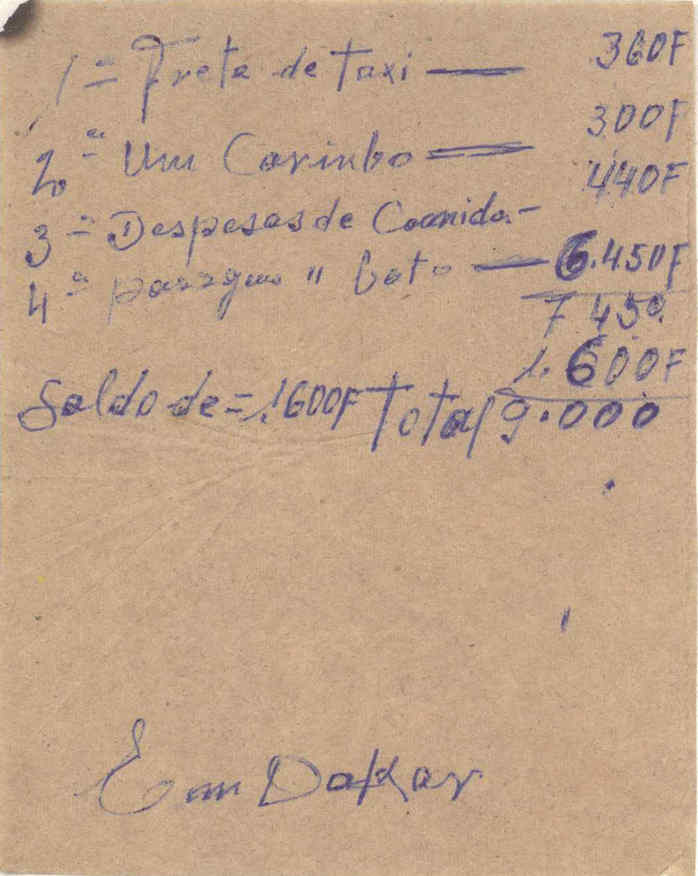 1º Frete de Taxi — 360F
2º Um Carimbo — 300F
3º Despesas de Comida - 440F
4º " Boto — 6.450F
7450.
1.600F
Saldo de = 1.600F Total 9.000
Em Dakar